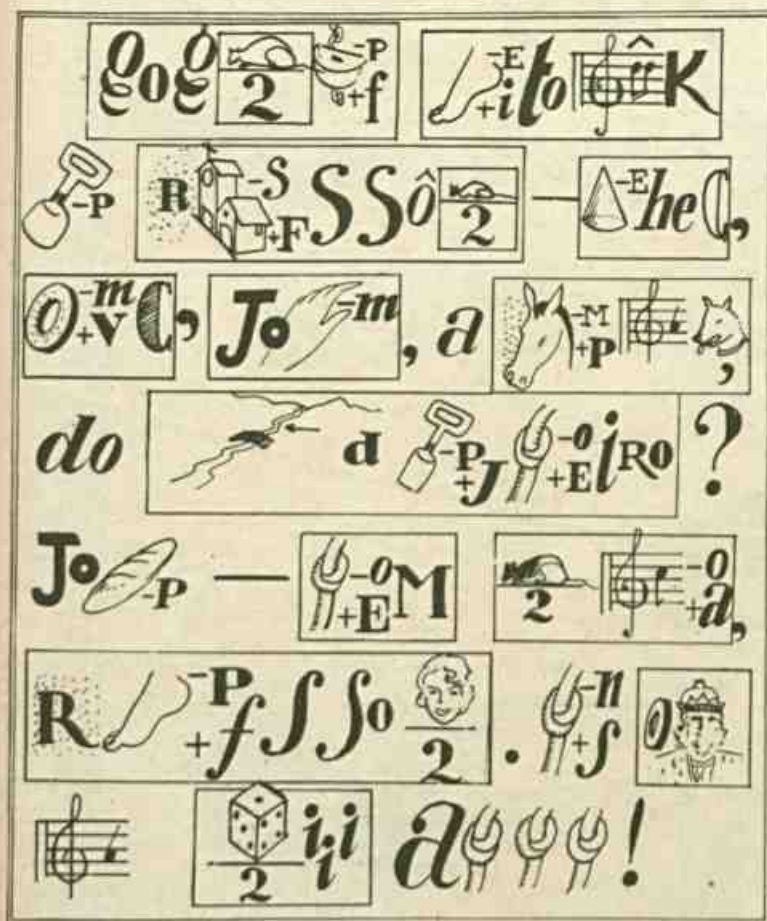 gog 2 -P +f -E +i to ^ K
-P R -S +F S S ô 2 — -E he ,
-m +v , Jo -m , a -M +P ,
do d -P +J -o +E i RO ?
Jo -P — -o +E M 2 -o +a ,
R -P +f S So 2 . -n +S
2 i i i a !